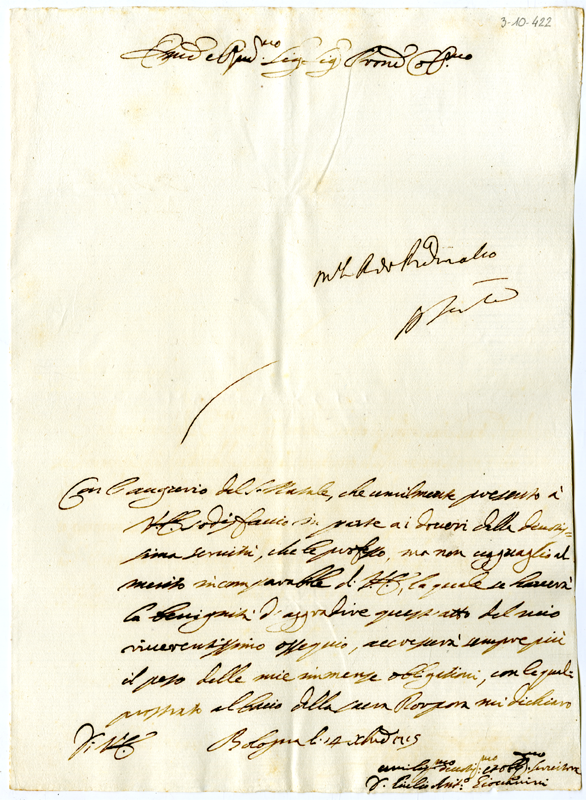 3-10-422
Em.o e R.mo Sig. Sig. Prone Col.mo
Con l'augurio del S. Natale, che umilmente presento à
V.E. sodisfaccio in parte ai doveri della devotis-
sima servitù, che le professo, ma non agguaglio al
merito incomparabile di V.E., la quale se haverà
la benignità d'aggradire quest'atto del mio
riverentissimo ossequio, accrescerà sempre più
il peso delle mie immense obligationi, con le quali
prostrato al bacio della sacra Porpora mi dichiaro
Di V.E. Bologna li 14 Xbre
umiliss.mo devotiss.mo et obblig.mo servitore